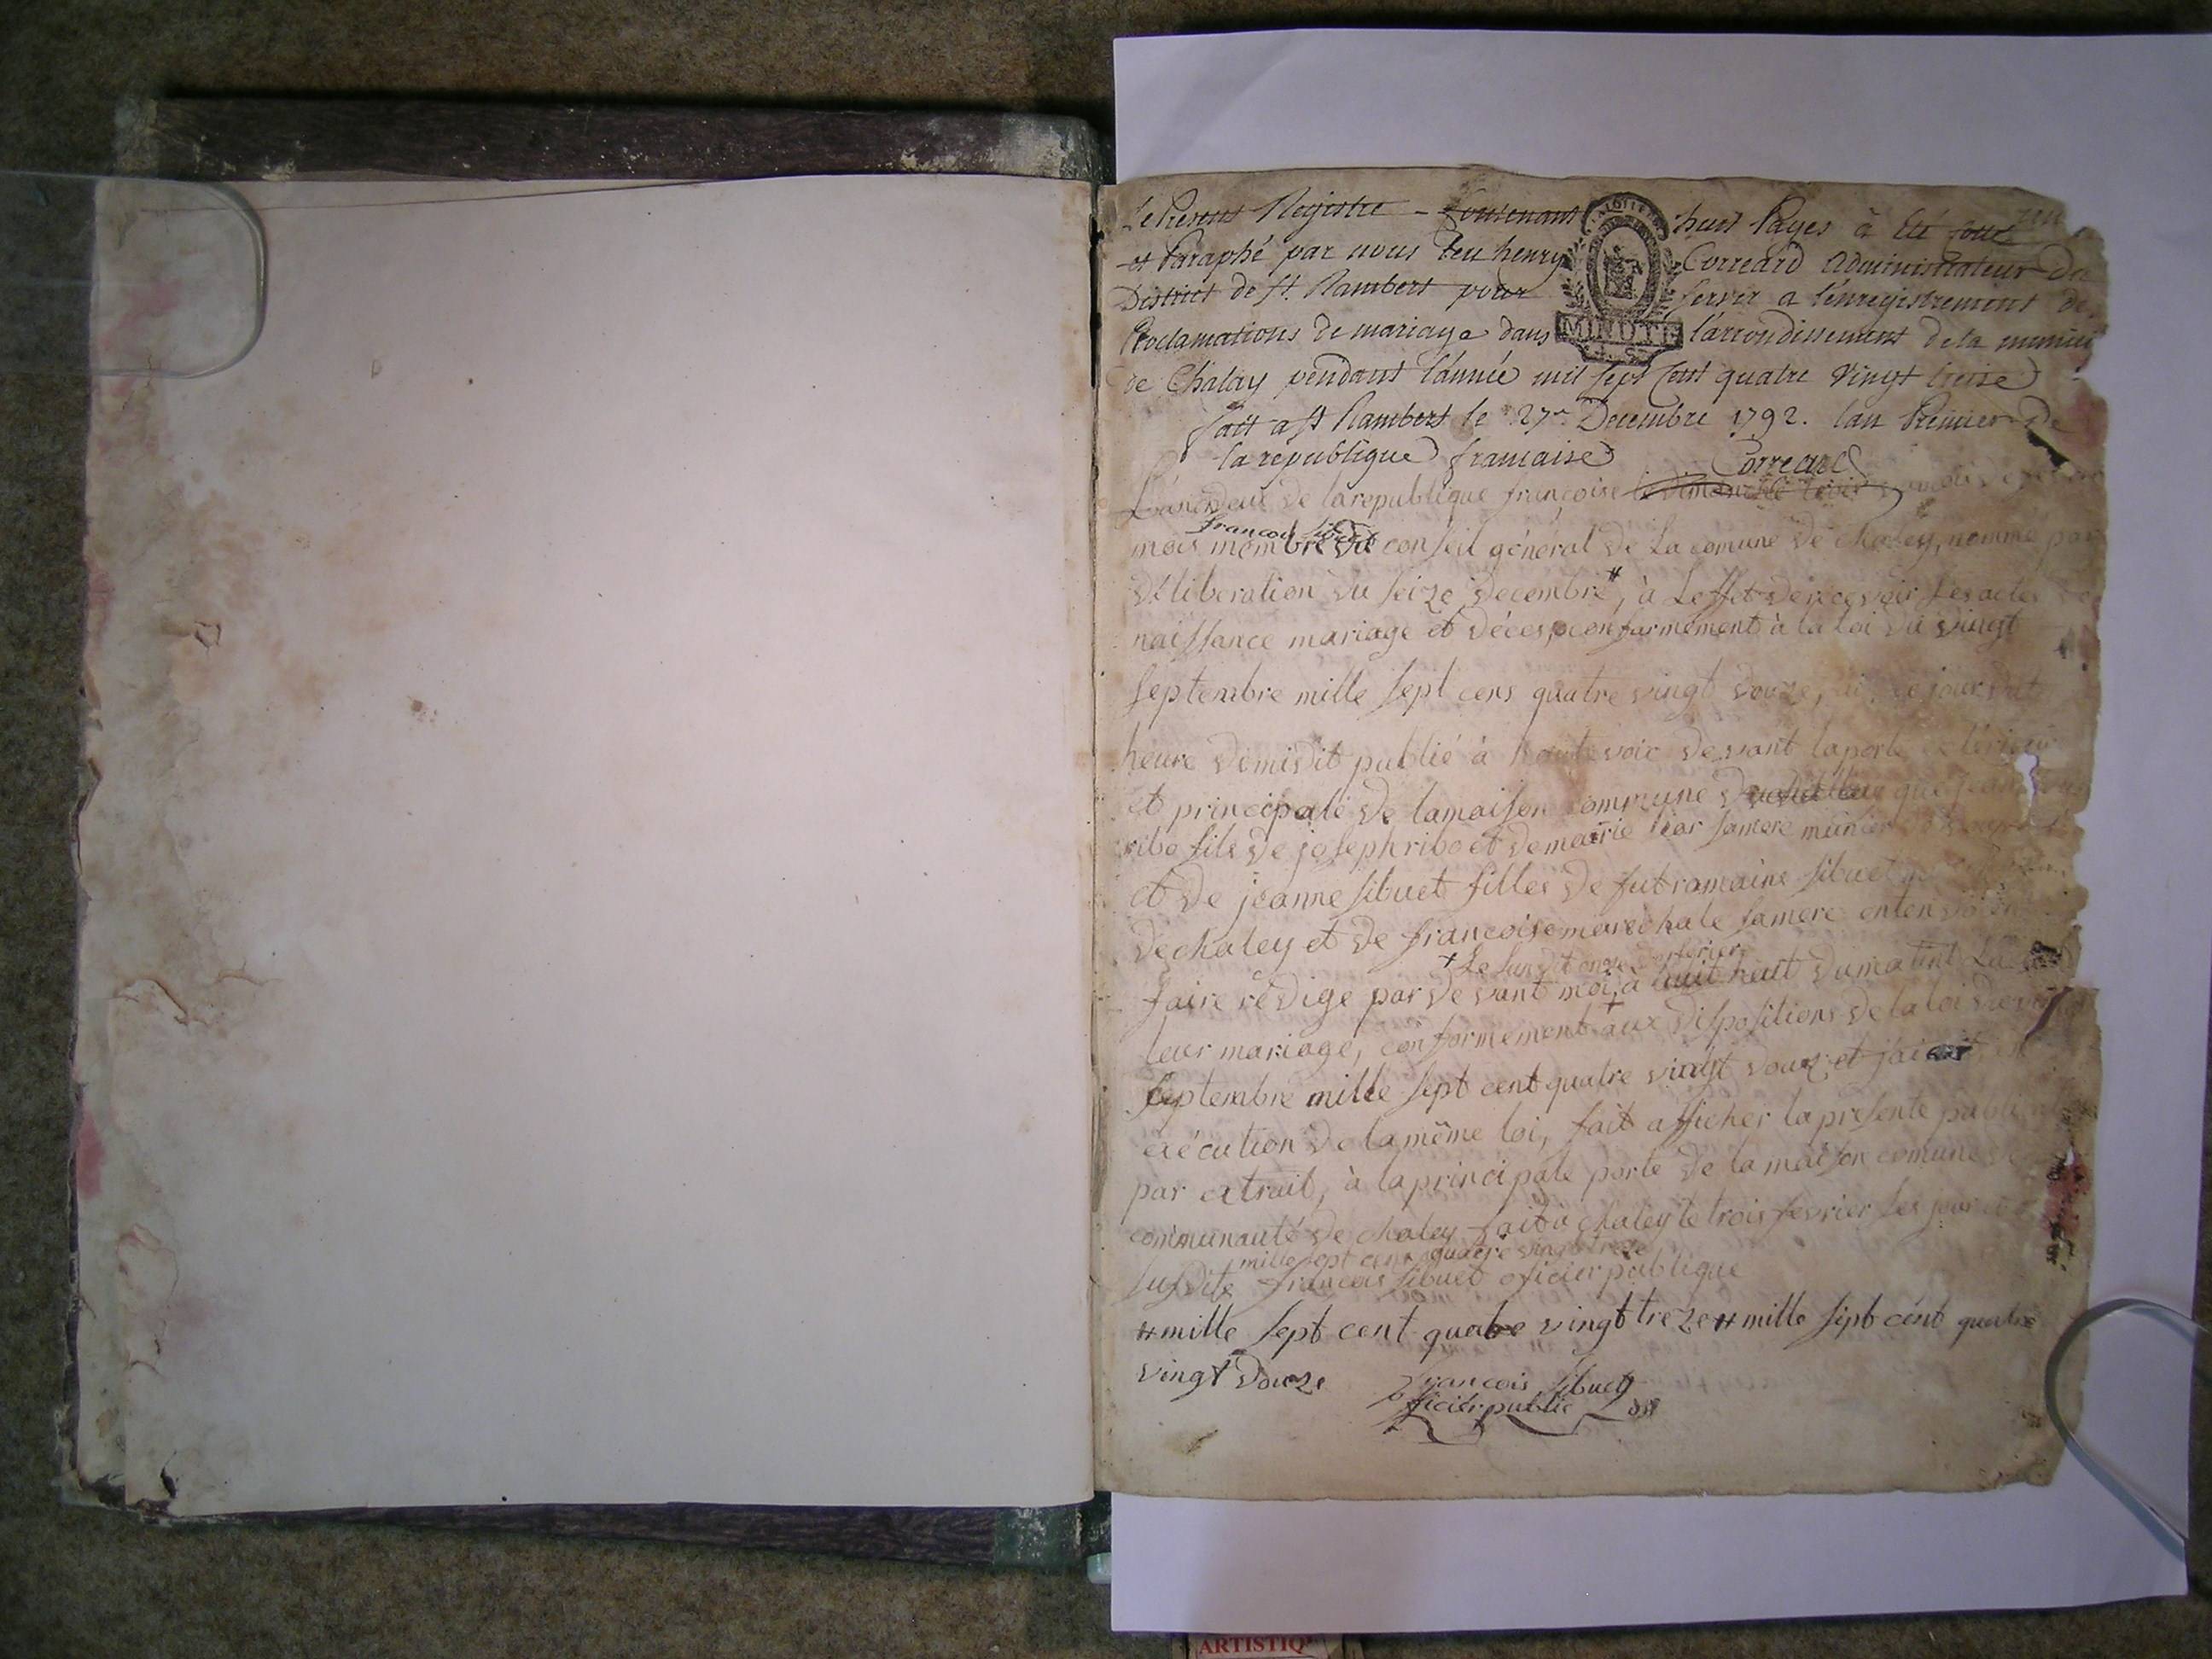 Le Présent Registre - Contenant huit Pages à été
et Paraphé par nous henry Correard Administrateur du
District de st. Rambert pour servir a l'enregistrement de
Proclamations de mariage dans l'arrondissement de la
MINUTE
de Chalay pendant l'année mil sept Cent quatre Vingt treise
fait a st Rambert le 27e Decembre 1792. lan Premier de
la republique francaise Correard
L'an deux de la republique françoise
francois sibuet
mois membre du conseil général de La comune de chaley, nommé par
déliberation du seize decembre #, à Leffet de recevoir les actes de
naissance mariage et déces, conformément à la loi du vingt
septembre mille sept cens quatre vingt douze, ai, ce jour
heure de midit publié à haute voie devant la porte
et principale de la maison commune que jean
ribo fils de joseph ribo et de marie samere
et de jeanne sibuet filles de fut romaine sibuet
de chaley et de francoise marechale samere entendoient
+ Le lundit onze fevrier
faire rédige par devant moi, à huit heut du matint
leur mariage, conformément + aux dispositions de la loi de vingt
septembre mille sept cent quatre vingt douz et j'ai
exécution de la même loi, fait afficher la presente
par extrait, à la principale porte de la maison comune
communauté de chaley fait à chaley le trois fevrier les jour et
mille sept cent quatre vingt treze
susdits francois sibuet oficier publique
# mille sept cent quatre vingt treze # mille sept cent quatre
vingt douze francois sibuet
oficier public
ARTISTIQ